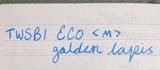 TWSBI ECO <M>
golden lapis